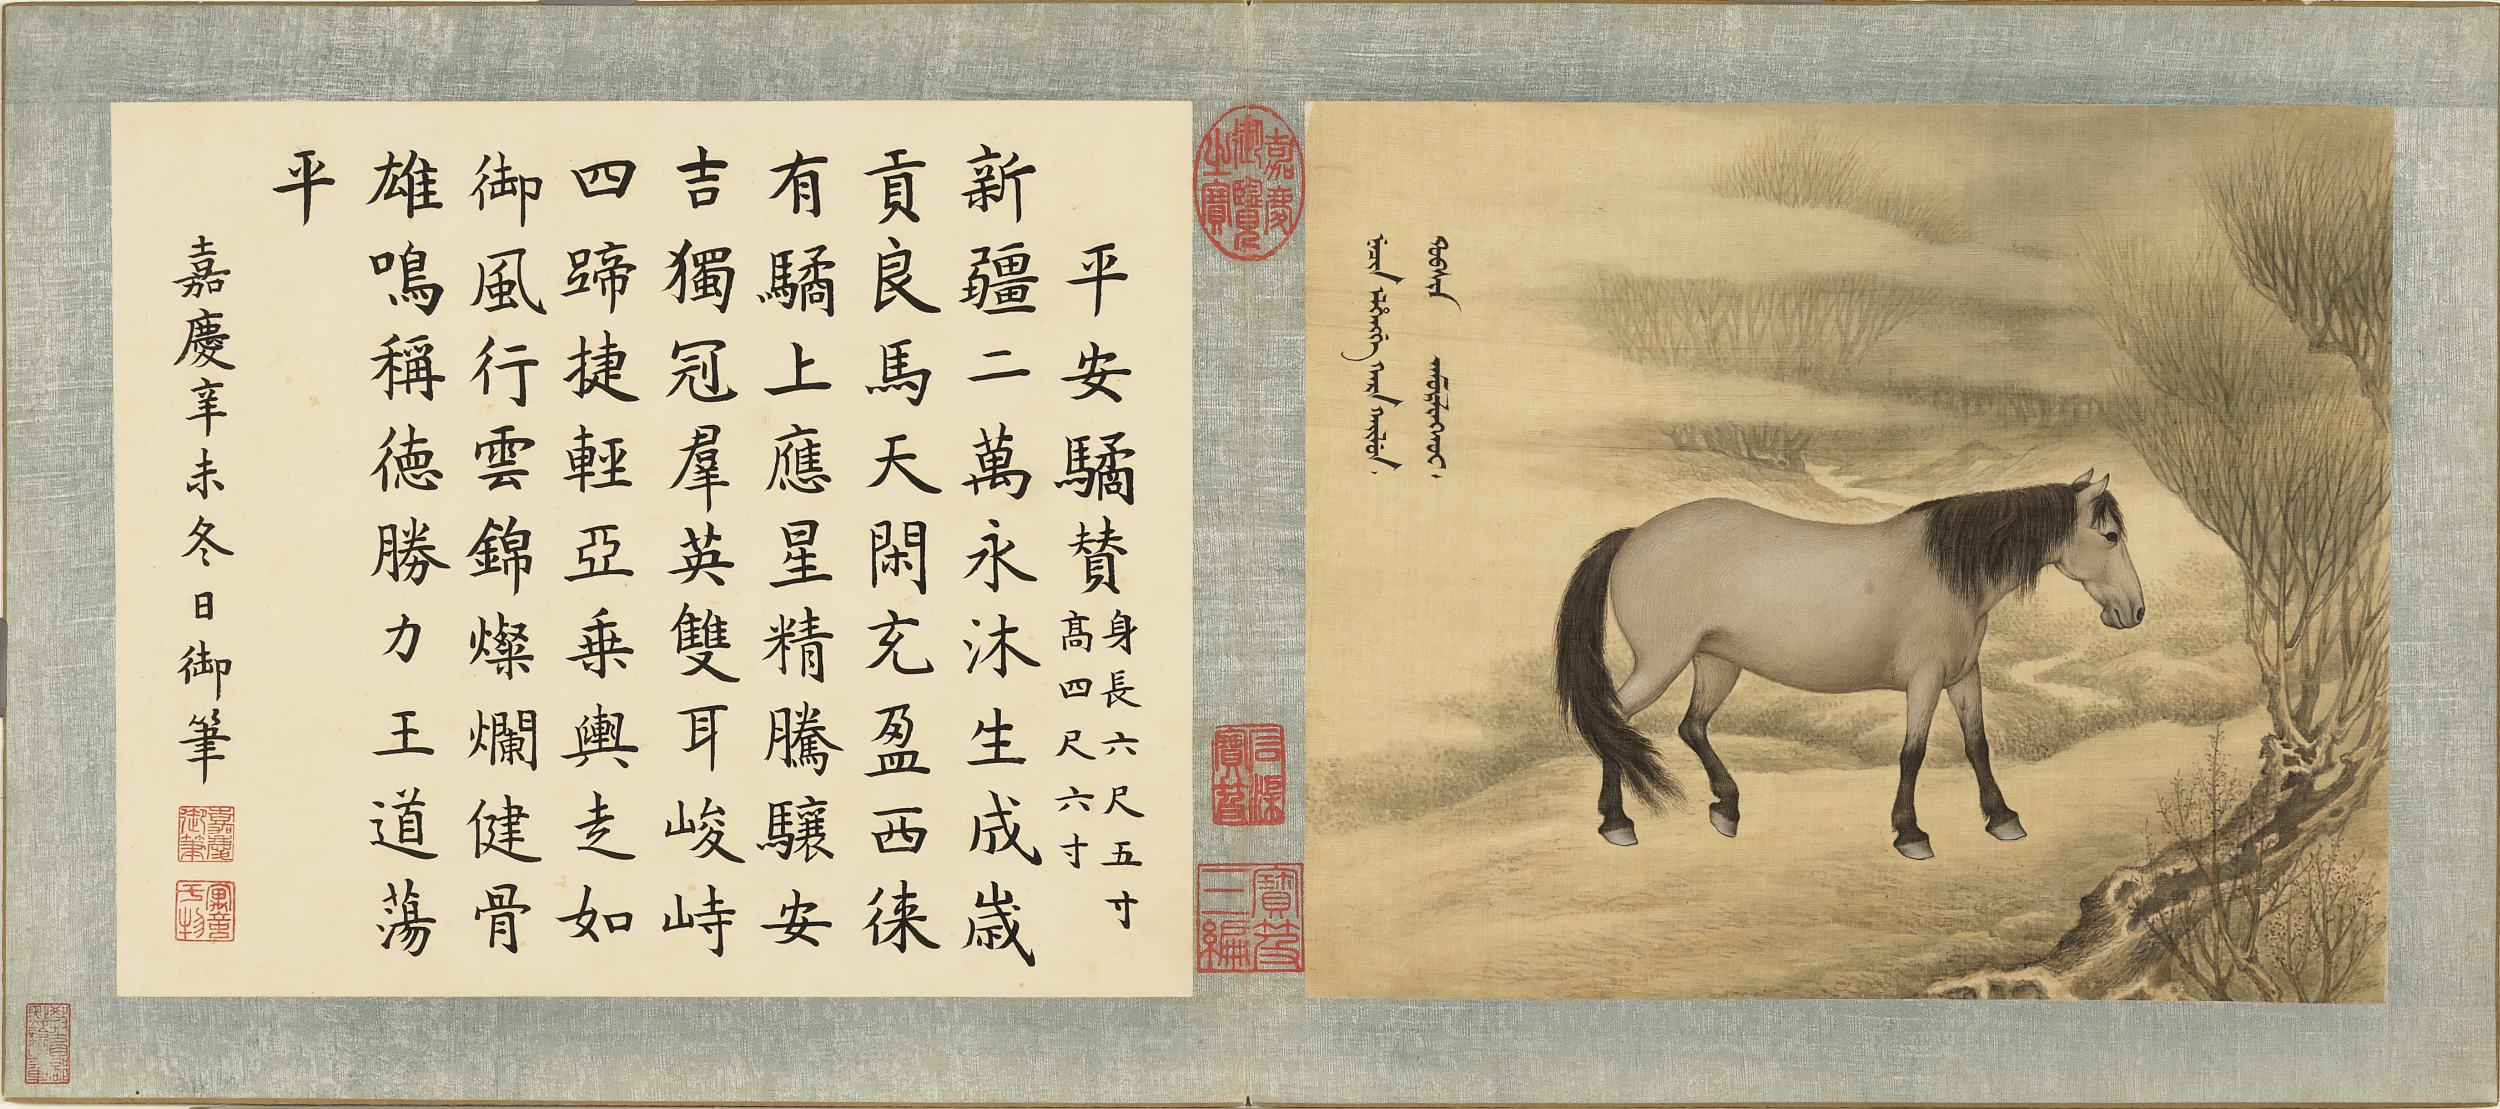 平安驈賛身長六尺五寸
高四尺六寸
新疆二萬永沐生成歲
貢良馬天閑充盈西徠
有驈上應星精騰驤安
吉獨冠羣英雙耳峻峙
四蹄捷輕亞乗輿走如
御風行雲錦燦爛健骨
雄鳴稱德勝力王道蕩
平
嘉慶辛未冬日御筆
嘉慶
御筆
嘉慶
御覽
之寶
寶笈
三編